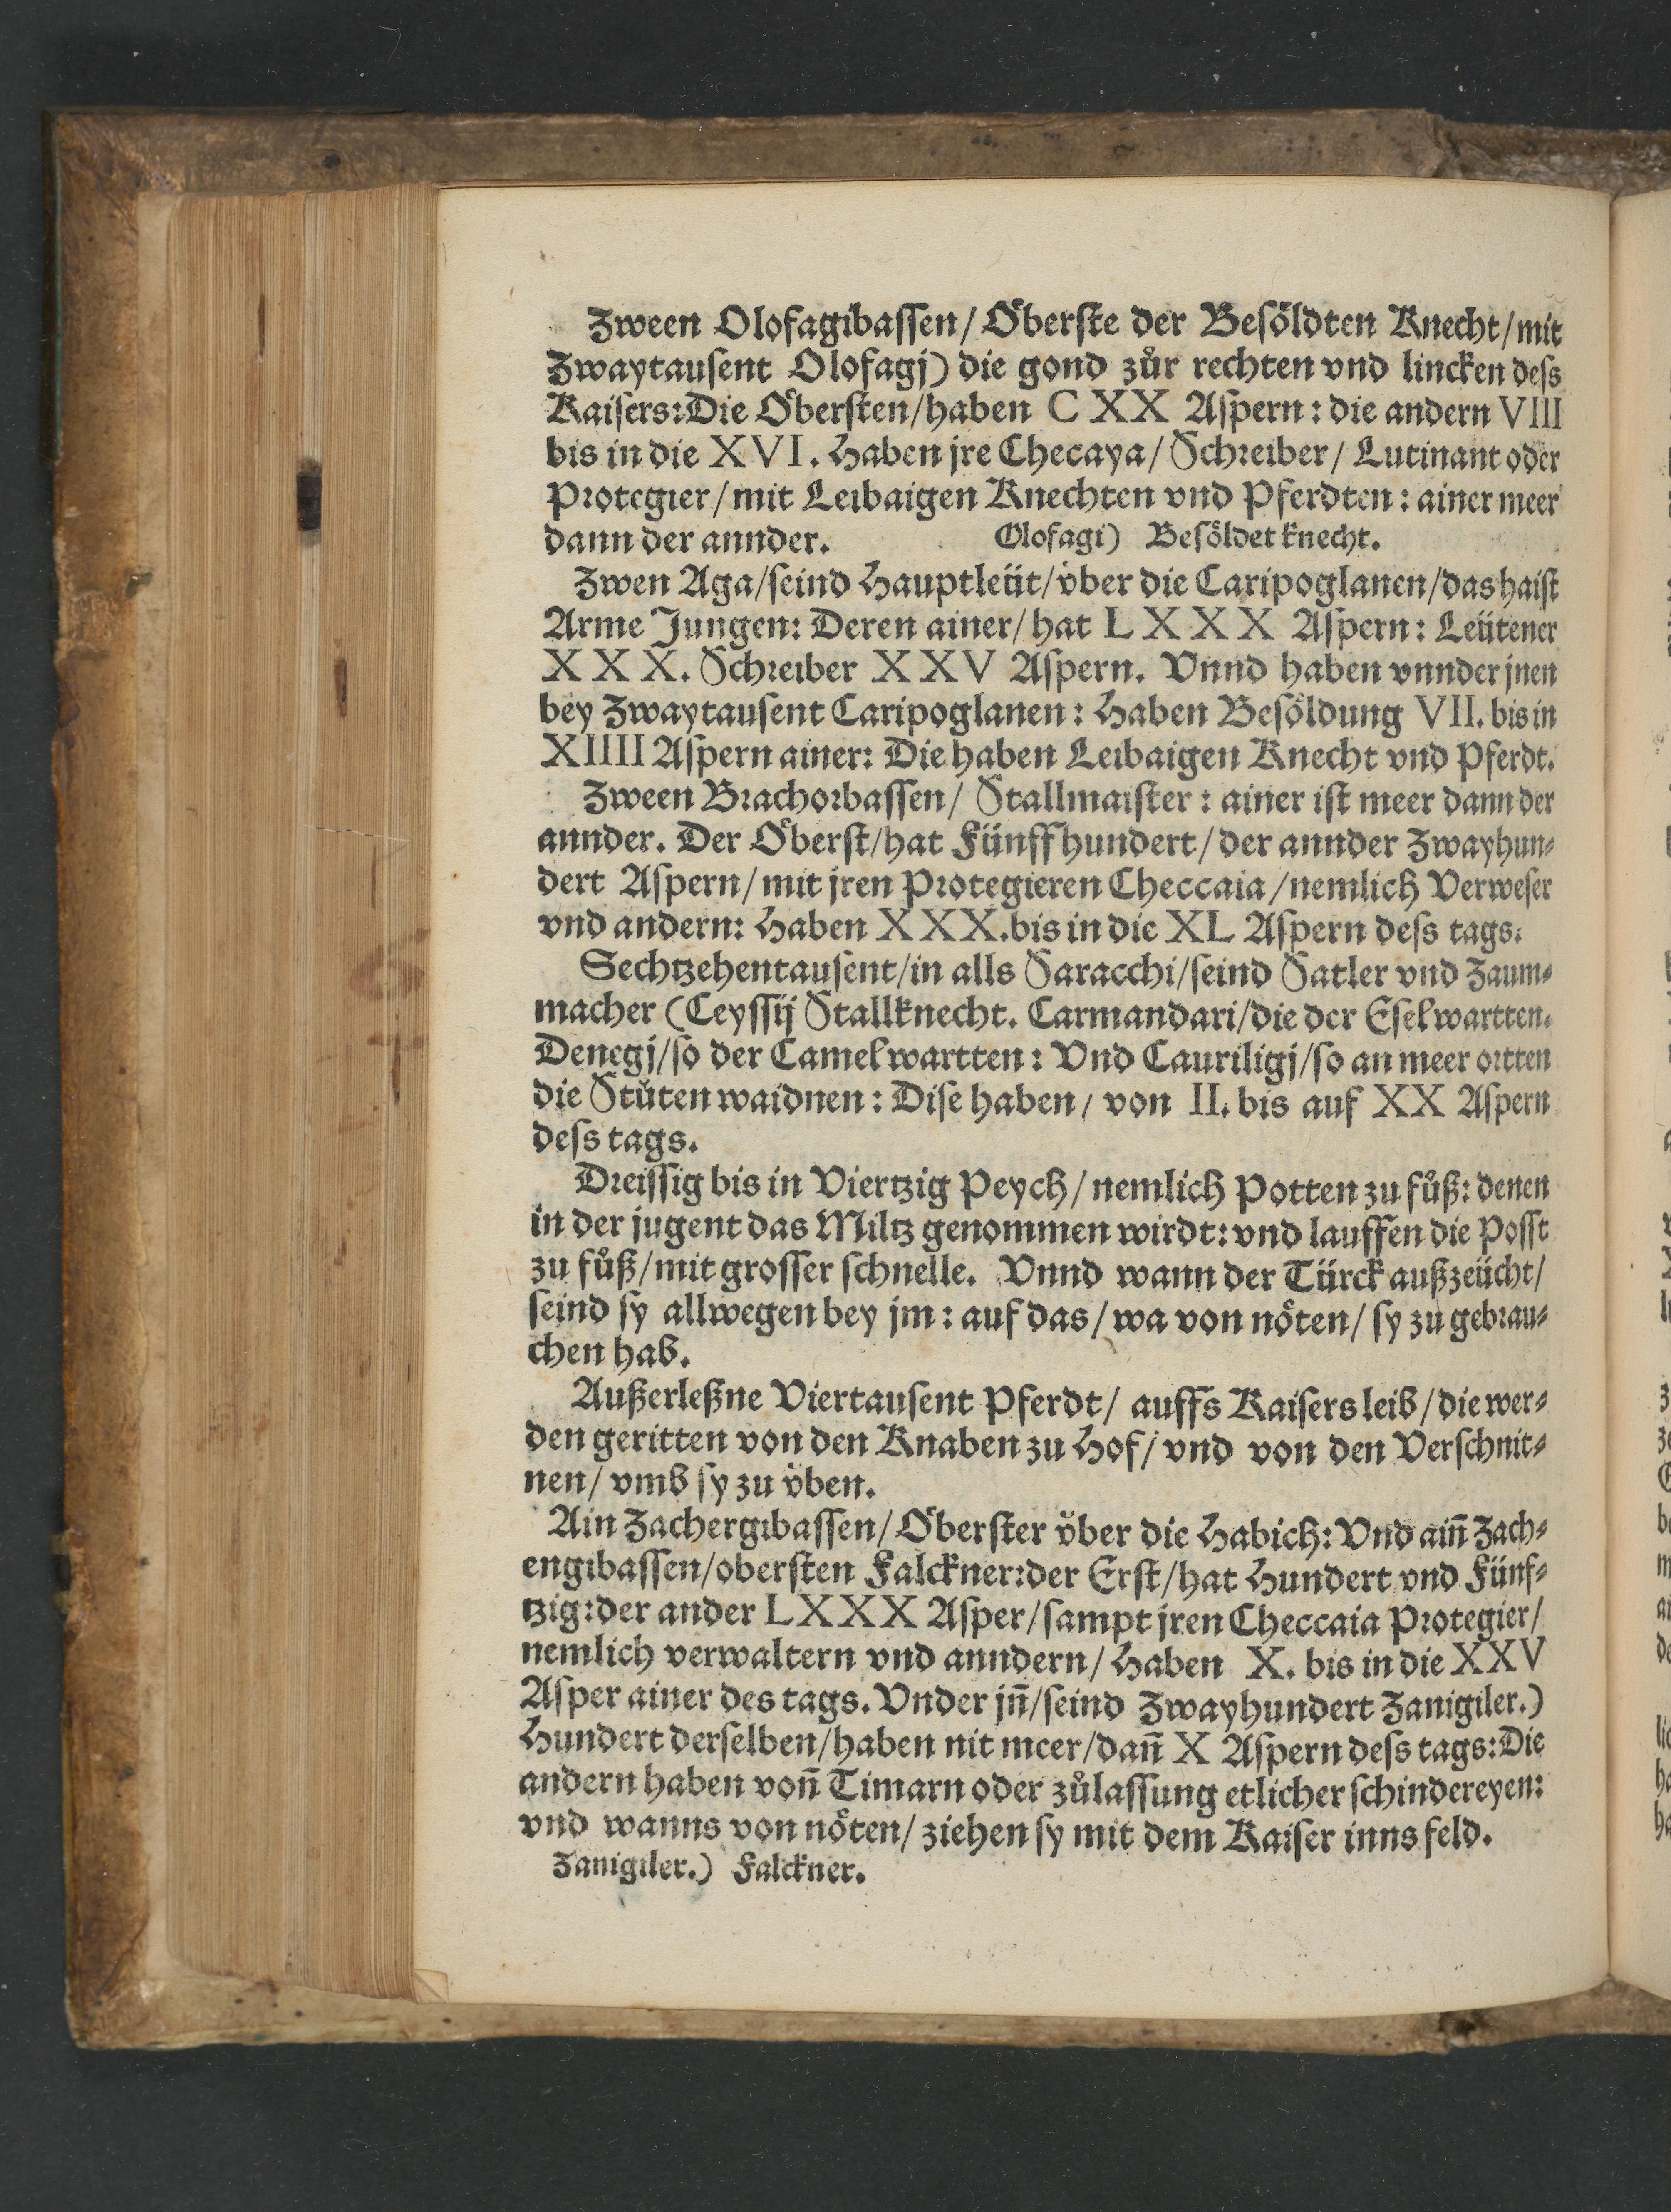 Zween Olofagibaſſen/ Oͤberſte der Beſoͤldten Knecht/ mit
Zwaytauſent Olofagj) die gond zuͦr rechten vnd lincken deſs
Kaiſers: Die Oͤberſten/ haben C XX Aſpern: die andern VIII
bis in die XVI. Haben jre Checaya/ Schreiber/ Lutinant oder
Protegier/ mit Leibaigen Knechten vnd Pferdten: ainer meer
dann der annder. Olofagi) Beſoͤldet knecht.
Zwen Aga/ ſeind Hauptleüt/ vͤber die Caripoglanen/ das haiſt
Arme Jungen: Deren ainer/ hat L X X X Aſpern: Leütener
X X X. Schreiber X X V Aſpern. Vnnd haben vnnder jnen
bey Zwaytauſent Caripoglanen: Haben Beſoͤldung VII. bis in
XIIII Aſpern ainer: Die haben Leibaigen Knecht vnd Pferdt.
Zween Brachorbaſſen/ Stallmaiſter: ainer iſt meer dann der
annder. Der Oͤberſt/ hat Fünff hundert/ der annder Zwayhun⸗
dert Aſpern/ mit jren Protegieren Checcaia/ nemlich Verweſer
vnd andern: Haben X X X. bis in die XL Aſpern deſs tags.
Sechtzehentauſent/ in alls Saracchi/ ſeind Satler vnd Zaum⸗
macher (Ceyſſij Stallknecht. Carmandari/ die der Eſel wartten.
Denegj/ ſo der Camel wartten: Vnd Cauriligj/ ſo an meer ortten
die Stuͦten waidnen: Diſe haben/ von II. bis auf XX Aſpern
deſs tags.
Dreiſſig bis in Viertzig Peych/ nemlich Potten zu fuͦß: denen
in der jugent das Miltz genommen wirdt: vnd lauffen die Poſſt
zu fuͦß/ mit groſſer ſchnelle. Vnnd wann der Türck außzeücht/
ſeind ſy allwegen bey jm: auf das/ wa von noͤten/ ſy zu gebrau⸗
chen hab.
Außerleßne Viertauſent Pferdt/ auffs Kaiſers leib/ die wer⸗
den geritten von den Knaben zu Hof/ vnd von den Verſchnit⸗
nen/ vmb ſy zu vͤben.
Ain Zachergibaſſen/ Oͤberſter vͤber die Habich: Vnd ain̄ Zach⸗
engibaſſen/ oberſten Falckner: der Erſt/ hat Hundert vnd Fünf⸗
tzig: der ander LXXX Aſper/ ſampt jren Checcaia Protegier/
nemlich verwaltern vnd anndern/ Haben X. bis in die XXV
Aſper ainer des tags. Vnder jn̄/ ſeind Zwayhundert Zanigiler.)
Hundert derſelben/ haben nit meer/ dan̄ X Aſpern deſs tags: Die
andern haben von̄ Timarn oder zuͦlaſſung etlicher ſchindereyen:
vnd wanns von noͤten/ ziehen ſy mit dem Kaiſer inns feld.
Zanigiler.) Falckner.